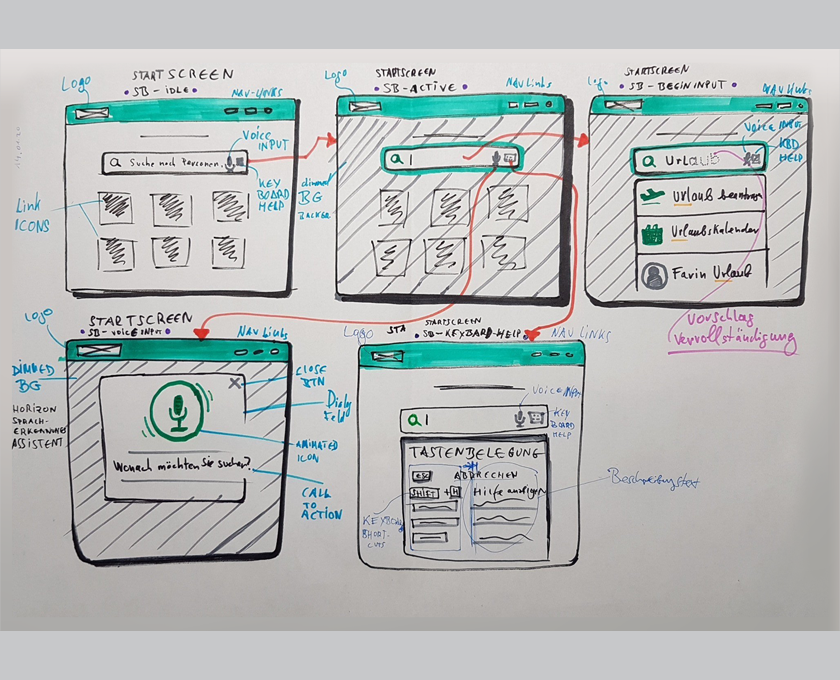 Logo
STARTSCREEN
• SB-IDLE •
NAV-LINKS
VOICE
INPUT
Suche nach Personen,
KEY
BOARD
HELP
Link
ICONS
Logo
STARTSCREEN
• SB-ACTIVE •
NAVLinks
dimmed
BG
Logo
STARTSCREEN
• SB-BEGININPUT •
NAVLinks
VOICE INPUT
KBD
HELP
Urlaub
Urlaub beantragen
Urlaubskalender
Farin Urlaub
Vorschlag
vervollständigung
Logo
STARTSCREEN
• SB-VOICEINPUT •
NAVLinks
DIMMED
BG
HORIZON
SPRACH-
ERKENNUNGS
ASSISTENT
X
CLOSE
BTN
Dialog
Feld
ANIMATED
ICON
Wonach möchten Sie suchen?
CALL
TO
ACTION
Logo
STA
STARTSCREEN
• SB-KEYBOARD-HELP •
NAV LINKS
VOICE INPUT
KEY
BOARD
HELP
TASTENBELEGUNG
ESC ABBRECHEN
SHIFT + H Hilfe anzeigen
KEYBOARD
SHORT-
CUTS
Beschreibungstext